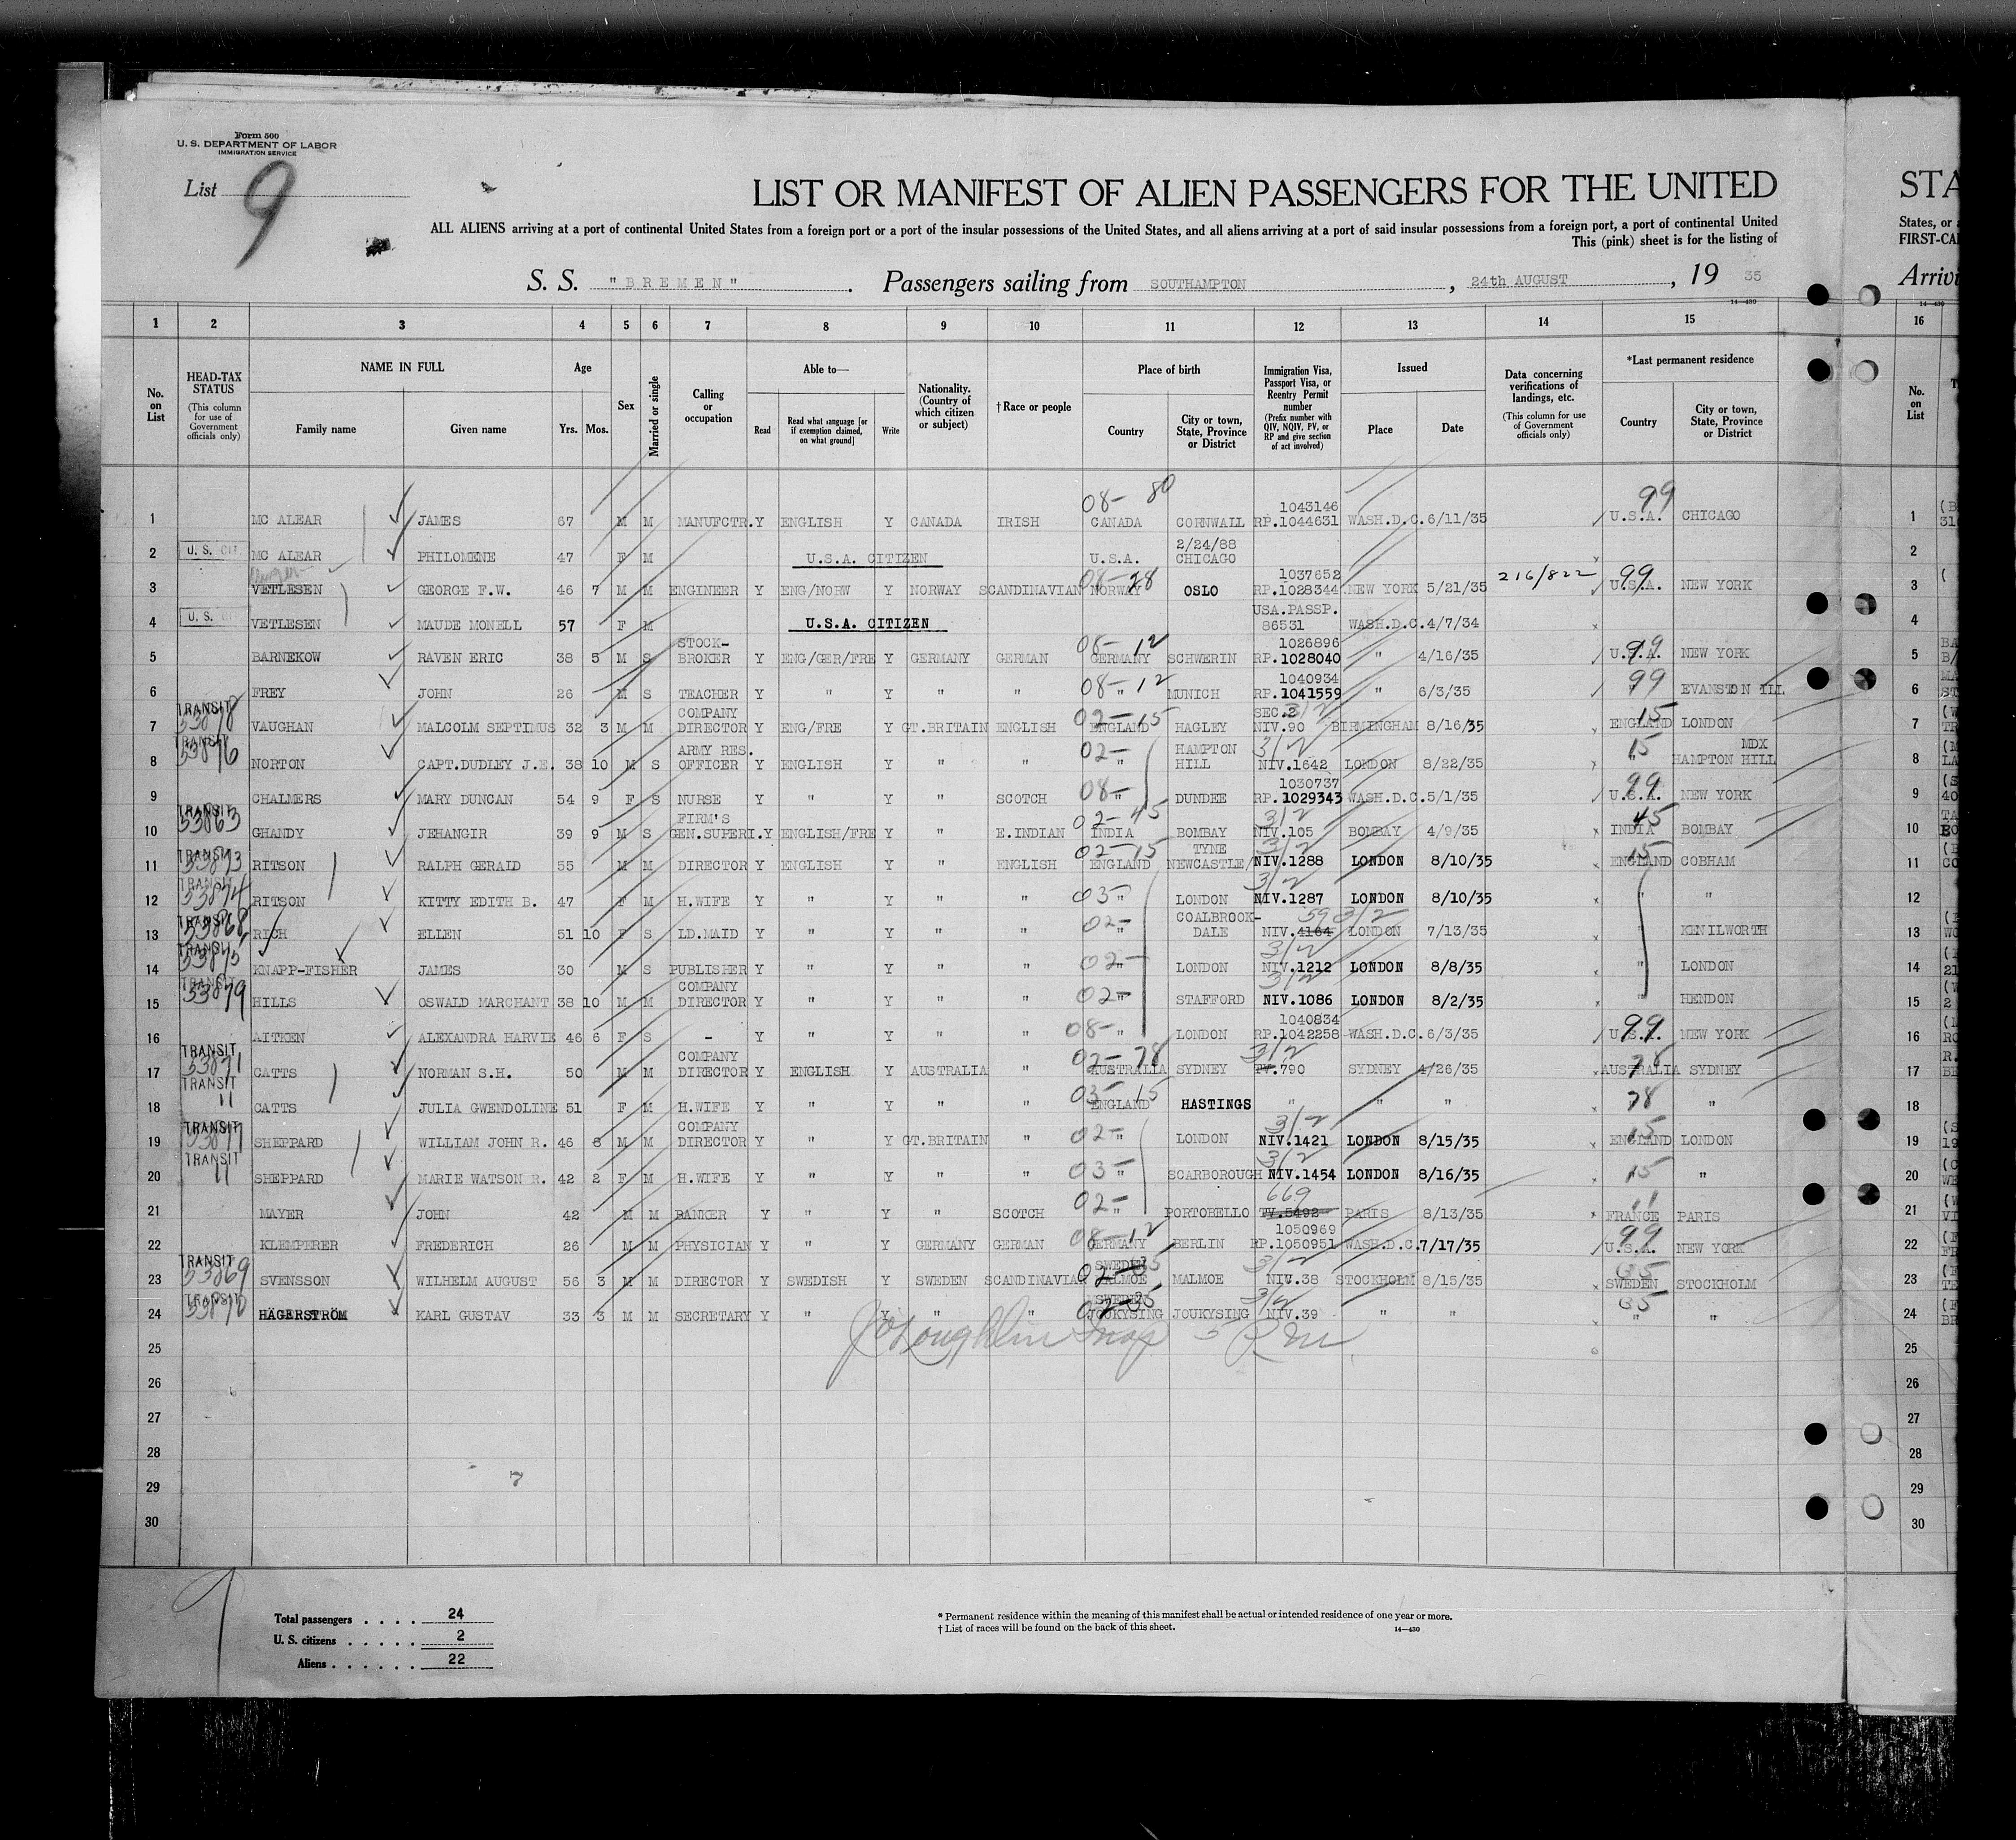 Form 500
U. S. DEPARTMENT OF LABOR
IMMIGRATION SERVICE
List 9
LIST OR MANIFEST OF ALIEN PASSENGERS FOR THE UNITED
STA
ALL ALIENS arriving at a port of continental United States from a foreign port or a port of the insular possessions of the United States, and all aliens arriving at a port of said insular possessions from a foreign port, a port of continental United
States, or
This (pink) sheet is for the listing of
FIRST-CA
S. S. "BREMEN". Passengers sailing from SOUTHAMPTON, 24th AUGUST, 19 35
Arrivi
14—430
1 2 3 4 5 6 7 8 9 10 11 12 13 14 15 16
No. on List
HEAD-TAX STATUS (This column for use of Government officials only)
NAME IN FULL
Family name Given name
Age Yrs. Mos.
Sex
Married or single
Calling or occupation
Able to—
Read Read what language [or if exemption claimed, on what ground] Write
Nationality. (Country of which citizen or subject)
†Race or people
Place of birth
Country City or town, State, Province or District
Immigration Visa, Passport Visa, or Reentry Permit number (Prefix number with QIV, NQIV, PV, or RP and give section of act involved)
Issued
Place Date
Data concerning verifications of landings, etc. (This column for use of Government officials only)
*Last permanent residence
Country City or town, State, Province or District
No. on List
08- 80 1043146 99
1 MC ALEAR JAMES 67 M M MANUFCTR. Y ENGLISH Y CANADA IRISH CANADA CORNWALL RP.1044631 WASH.D.C. 6/11/35 U.S.A. CHICAGO 1
2/24/88
2 U. S. CIT MC ALEAR PHILOMENE 47 F M U.S.A. CITIZEN U.S.A. CHICAGO 2
08-28 1037652 216/822 99
3 VETLESEN GEORGE F.W. 46 7 M M ENGINEER Y ENG/NORW Y NORWAY SCANDINAVIAN NORWAY OSLO RP.1028344 NEW YORK 5/21/35 U.S.A. NEW YORK 3
USA.PASSP.
4 U. S. VETLESEN MAUDE MONELL 57 F M U.S.A. CITIZEN 86531 WASH.D.C. 4/7/34 4
STOCK- 08-12 1026896 99
5 BARNEKOW RAVEN ERIC 38 5 M S BROKER Y ENG/GER/FRE Y GERMANY GERMAN GERMANY SCHWERIN RP.1028040 " 4/16/35 U.S.A. NEW YORK 5
08-12 1040934 99
6 FREY JOHN 26 M S TEACHER Y " Y " " " MUNICH RP.1041559 " 6/3/35 EVANSTON ILL 6
TRANSIT 53878 COMPANY 02-15 SEC.3 3/2 15
7 VAUGHAN MALCOLM SEPTIMUS 32 3 M M DIRECTOR Y ENG/FRE Y GT.BRITAIN ENGLISH ENGLAND HAGLEY NIV.90 BIRMINGHAM 8/16/35 ENGLAND LONDON 7
TRANSIT 53876 ARMY RES. 02- HAMPTON 3/2 15 MDX
8 NORTON CAPT.DUDLEY J.E. 38 10 M S OFFICER Y ENGLISH Y " " " HILL NIV.1642 LONDON 8/22/35 " HAMPTON HILL 8
08- 1030737 99
9 CHALMERS MARY DUNCAN 54 9 F S NURSE Y " Y " SCOTCH " DUNDEE RP.1029343 WASH.D.C. 5/1/35 U.S.A. NEW YORK 9
TRANSIT 53863 FIRM'S 02-45 3/2 45
10 GHANDY JEHANGIR 39 9 M S GEN.SUPERI. Y ENGLISH/FRE Y " E.INDIAN INDIA BOMBAY NIV.105 BOMBAY 4/9/35 INDIA BOMBAY 10
TRANSIT 53873 02-15 TYNE 3/2 15
11 RITSON RALPH GERALD 55 M M DIRECTOR Y ENGLISH Y " ENGLISH ENGLAND NEWCASTLE/ NIV.1288 LONDON 8/10/35 ENGLAND COBHAM 11
TRANSIT 53874 03- 3/2
12 RITSON KITTY EDITH B. 47 F M H.WIFE Y " Y " " " LONDON NIV.1287 LONDON 8/10/35 " " 12
TRANSIT 53868 02- COALBROOK- 59 3/2
13 RICH ELLEN 51 10 F S LD.MAID Y " Y " " " DALE NIV.4164 LONDON 7/13/35 " KENILWORTH 13
TRANSIT 53875 02- 3/2
14 KNAPP-FISHER JAMES 30 M S PUBLISHER Y " Y " " " LONDON NIV.1212 LONDON 8/8/35 " LONDON 14
TRANSIT 53879 COMPANY 02- 3/2
15 HILLS OSWALD MARCHANT 38 10 M M DIRECTOR Y " Y " " " STAFFORD NIV.1086 LONDON 8/2/35 " HENDON 15
08- 1040834 99
16 AITKEN ALEXANDRA HARVIE 46 6 F S - Y " Y " " " LONDON RP.1042258 WASH.D.C. 6/3/35 U.S.A. NEW YORK 16
TRANSIT 53871 COMPANY 02-78 3/2 78
17 CATTS NORMAN S.H. 50 M M DIRECTOR Y ENGLISH Y AUSTRALIA " AUSTRALIA SYDNEY TV.790 SYDNEY 4/26/35 AUSTRALIA SYDNEY 17
TRANSIT 11 03-15
18 CATTS JULIA GWENDOLINE 51 F M H.WIFE Y " Y " " ENGLAND HASTINGS " " " 78 " 18
TRANSIT 53877 COMPANY 02- 3/2 15
19 SHEPPARD WILLIAM JOHN R. 46 8 M M DIRECTOR Y " Y GT.BRITAIN " " LONDON NIV.1421 LONDON 8/15/35 ENGLAND LONDON 19
TRANSIT 11 03- 3/2 15
20 SHEPPARD MARIE WATSON R. 42 2 F M H.WIFE Y " Y " " " SCARBOROUGH NIV.1454 LONDON 8/16/35 " 20
02- 669 11
21 MAYER JOHN 42 M M BANKER Y " Y " SCOTCH " PORTOBELLO TV.5492 PARIS 8/13/35 FRANCE PARIS 21
08-12 1050969 99
22 KLEMPERER FREDERICH 26 M M PHYSICIAN Y " Y GERMANY GERMAN GERMANY BERLIN RP.1050951 WASH.D.C. 7/17/35 U.S.A. NEW YORK 22
TRANSIT 53869 SWEDEN 02-35 3/2 35
23 SVENSSON WILHELM AUGUST 56 3 M M DIRECTOR Y SWEDISH Y SWEDEN SCANDINAVIAN MALMOE MALMOE NIV.38 STOCKHOLM 8/15/35 SWEDEN STOCKHOLM 23
TRANSIT 53870 SWEDEN 02-35 3/2 35
24 HÄGERSTRÖM KARL GUSTAV 33 3 M M SECRETARY Y " Y " " JOUKYSING JOUKYSING NIV.39 " " " " 24
J O'Loughlin Insp
25 25
26 26
27 27
28 28
29 29
30 30
Total passengers . . . . 24
U. S. citizens . . . . . 2
Aliens . . . . . . 22
* Permanent residence within the meaning of this manifest shall be actual or intended residence of one year or more.
† List of races will be found on the back of this sheet.
14—430